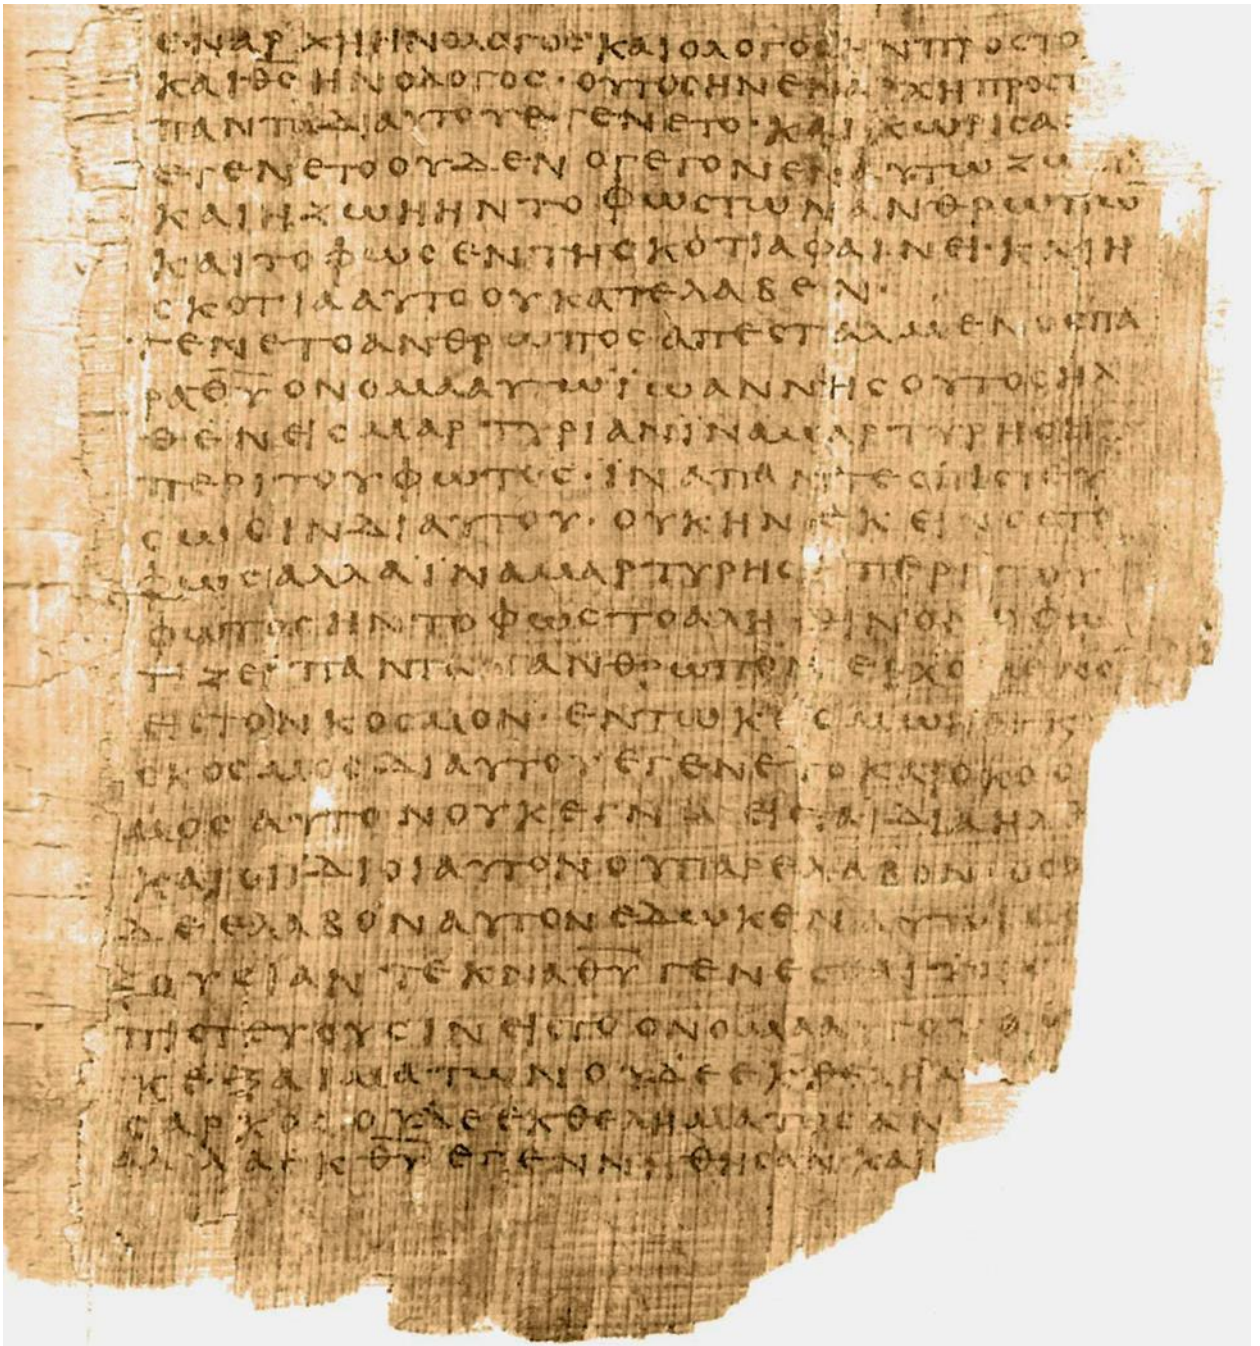 ΕΝΑΡΧΗΗΝΟΛΟΓΟΣΚΑΙΟΛΟΓΟΣΗΝΠΡΟΣΤΟ
ΚΑΙΘ̅Σ̅ΗΝΟΛΟΓΟΣ·ΟΥΤΟΣΗΝΕΝΑΡΧΗΠΡΟΣΤ
ΠΑΝΤΑΔΙΑΥΤΟΥΕΓΕΝΕΤΟ·ΚΑΙΧΩΡΙΣΑ
ΕΓΕΝΕΤΟΟΥΔΕΝΟΓΕΓΟΝΕΝΑΥΤΩΖΩ
ΚΑΙΗΖΩΗΗΝΤΟΦΩΣΤΩΝΑΝΘΡΩΠΩ̅
ΚΑΙΤΟΦΩΣΕΝΤΗΣΚΟΤΙΑΦΑΙΝΕΙ·ΚΑΙΗ
ΣΚΟΤΙΑΑΥΤΟΟΥΚΑΤΕΛΑΒΕΝ·
ΓΕΝΕΤΟΑΝΘΡΩΠΟΣΑΠΕΣΤΑΛΜΕΝΟΣΠΑ
ΡΑΘ̅Υ̅ΟΝΟΜΑΑΥΤΩΪΩΑΝΝΗΣΟΥΤΟΣΗΛ
ΘΕΝΕΙΣΜΑΡΤΥΡΙΑΝΪΝΑΜΑΡΤΥΡΗΣΗ
ΠΕΡΙΤΟΥΦΩΤΟΣ·ΪΝΑΠΑΝΤΕΣΠΙΣΤΕΥ
ΣΩΣΙΝΔΙΑΥΤΟΥ·ΟΥΚΗΝΕΚΕΙΝΟΣΤΟ
ΦΩΣΑΛΛΑΪΝΑΜΑΡΤΥΡΗΣΗΠΕΡΙΤΟΥ
ΦΩΤΟΣΗΝΤΟΦΩΣΤΟΑΛΗΘΙΝΟΝΟΦΩ
ΤΙΖΕΙΠΑΝΤΑΑΝΘΡΩΠΟΝΕΡΧΟΜΕΝΟ
ΕΙΣΤΟΝΚΟΣΜΟΝ·ΕΝΤΩΚΟΣΜΩΗΝΚ
ΟΚΟΣΜΟΣΔΙΑΥΤΟΥΕΓΕΝΕΤΟΚΑΙΟΚΟΣ
ΜΟΣΑΥΤΟΝΟΥΚΕΓΝΩΕΙΣΤΑΙΔΙΑΗΛΘ
ΚΑΙΟΙΪΔΙΟΙΑΥΤΟΝΟΥΠΑΡΕΛΑΒΟΝ·ΟΣΟ
ΔΕΕΛΑΒΟΝΑΥΤΟΝΕΔΩΚΕΝΑΥΤΟΙΣΕ
ΞΟΥΣΙΑΝΤΕΚΝΑΘ̅Υ̅ΓΕΝΕΣΘΑΙΤΟΙΣ
ΠΙΣΤΕΥΟΥΣΙΝΕΙΣΤΟΟΝΟΜΑΑΥΤΟΥ·Ο
ΚΕΞΑΙΜΑΤΩΝΟΥΔΕΕΚΘΕΛΗΜ
ΣΑΡΚΟΣΟΥΔΕΕΚΘΕΛΗΜΑΤΟΣΑΝ
ΑΛΛΑΕΚΘ̅Υ̅ΕΓΕΝΝΗΘΗΣΑΝΚΑΙ